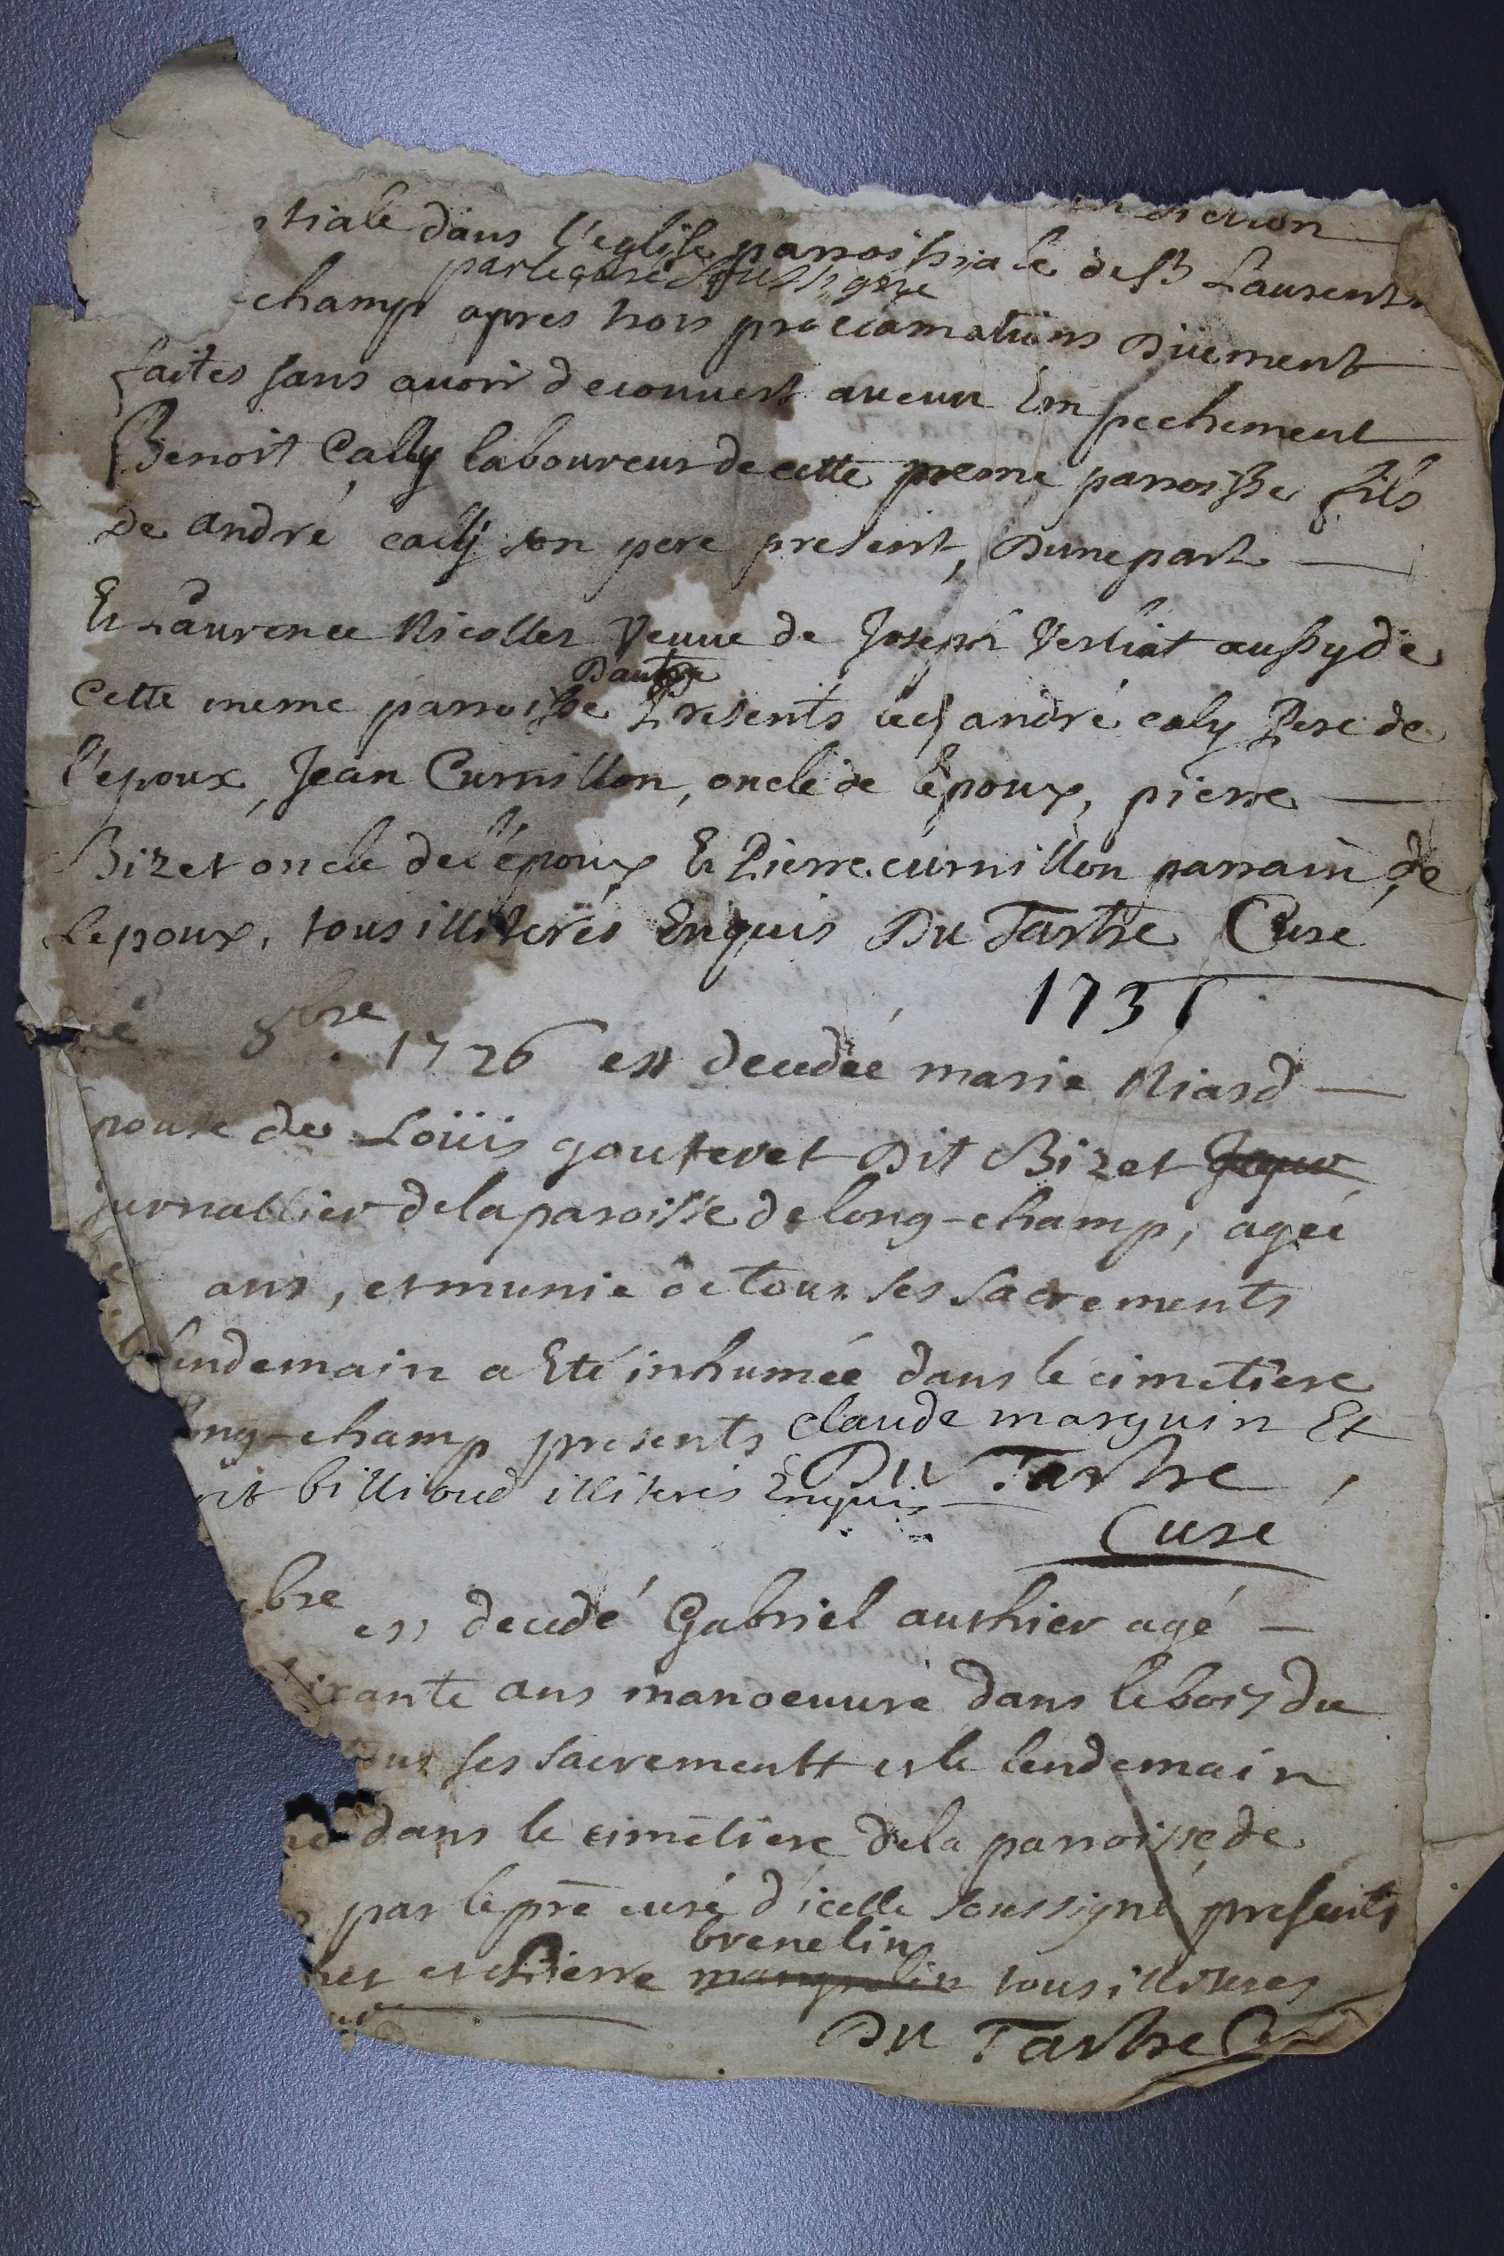 tiale dans l'eglise parroissiale de st Laurent
par le curé soussigné
champ apres trois proclamations Düement
faites sans avoir decouvert aucun Empechement
Benoit Caly laboureur de cette meme parroisse fils
de andré caly son pere present, Dune part
Et Laurence Nicollet Veuve de Joseph Verliat aussy de
Dautre
Cette meme parroisse Presents led andré caly Pere de
l'epoux, Jean Curnillon, oncle de l'epoux, pierre
Bizet oncle de l'époux Et Pierre curnillon parrain de
Lepoux, tous illiterés Enquis Du Tartre Curé
1736
8bre 1726 est decedée marie Niard
pouse de Loüis gouteret Dit Bizet
jurnallier de la paroisse de long-champ, agée
ans, et munie de tous ses sacrements
lendemain a Eté inhumée dans le cimetiere
ng-champ presents Claude marguin Et
it billioud illiterés Enquis Du Tartre
Curé
bre est decedé Gabriel authier agé
ixante ans manoeuvre dans le bois du
ous ses sacrements et le lendemain
dans le cimetiere de la parroisse de
par le pre curé d'icelle soussigné presents
brenelin
et Pierre tous illiteres
Du Tartre